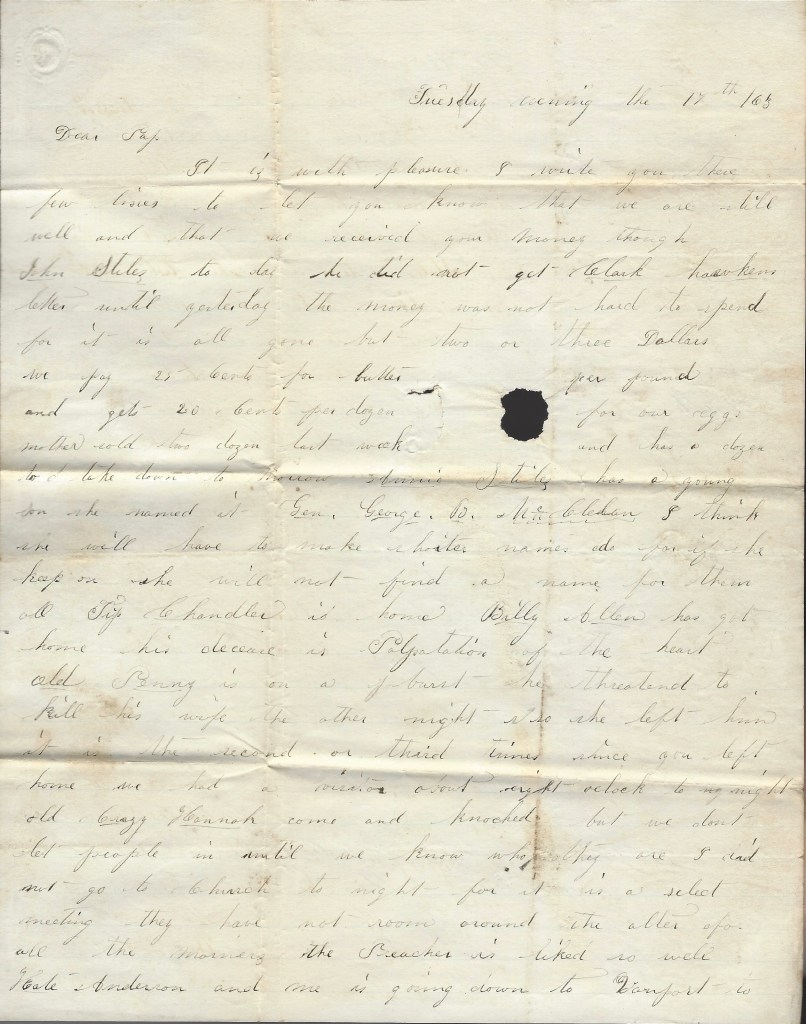 Tuesday evening the 17th / 63
Dear Pap
It is with pleasure I write you these
few lines to let you know that we are still
well and that we received your money though
John Stiles to day he did not get Clark hawkens
letter until yesterday the money was not hard to spend
for it is all gone but two or three Dollars
we pay 25 Cents for butter per pound
and gets 20 Cent per dozen for our eggs
mother sold two dozen last week and has a dozen
to take down to morrow Annie Stiles has a young
son she named it Gen. George. B. Mc Clelan I think
she will have to make shorter names do for if she
keep on she will not find a name for them
all Tip Chandler is home Billy Allen has got
home his decease is Palpatation of the heart
old Penny is on a burst he threatend to
kill his wife the other night so she left him
it is the second or third times since you left
home we had a visitor about eight oclock to night
old Crazy Hannah come and knocked but we dont
let people in until we know who they are I did
not go to Church to night for it is a select
meeting they have not room around the alter for
all the the Preacher is liked so well
Kate Anderson and me is going down to to